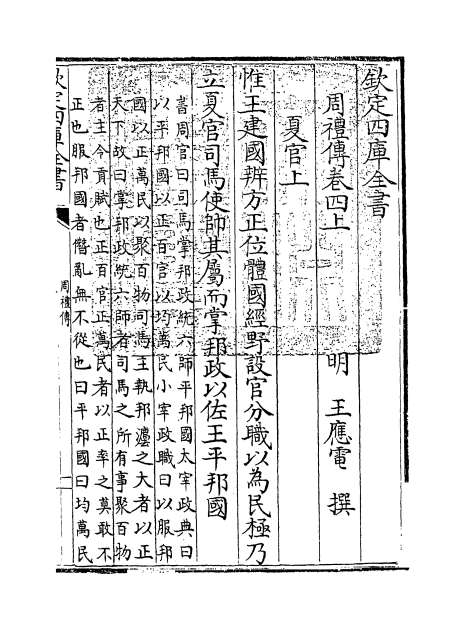 欽定四庫全書
周禮傳卷四上　明　王應電　撰
夏官上
惟王建國辨方正位體國經野設官分職以為民極乃
立夏官司馬使帥其屬而掌邦政以佐王平邦國
書周官曰司馬掌邦政統六師平邦國太宰政典曰
以平邦國以正百官以均萬民小宰政職曰以服邦
國以正萬民以聚百物司馬主執邦灋之大者以正
天下故曰掌邦政統六師者司馬之所有事聚百物
者主令貢賦也正百官正萬民者以正率之莫敢不
正也服邦國者僭亂無不從也曰平邦國曰均萬民
欽定四庫全書
周禮傳
一